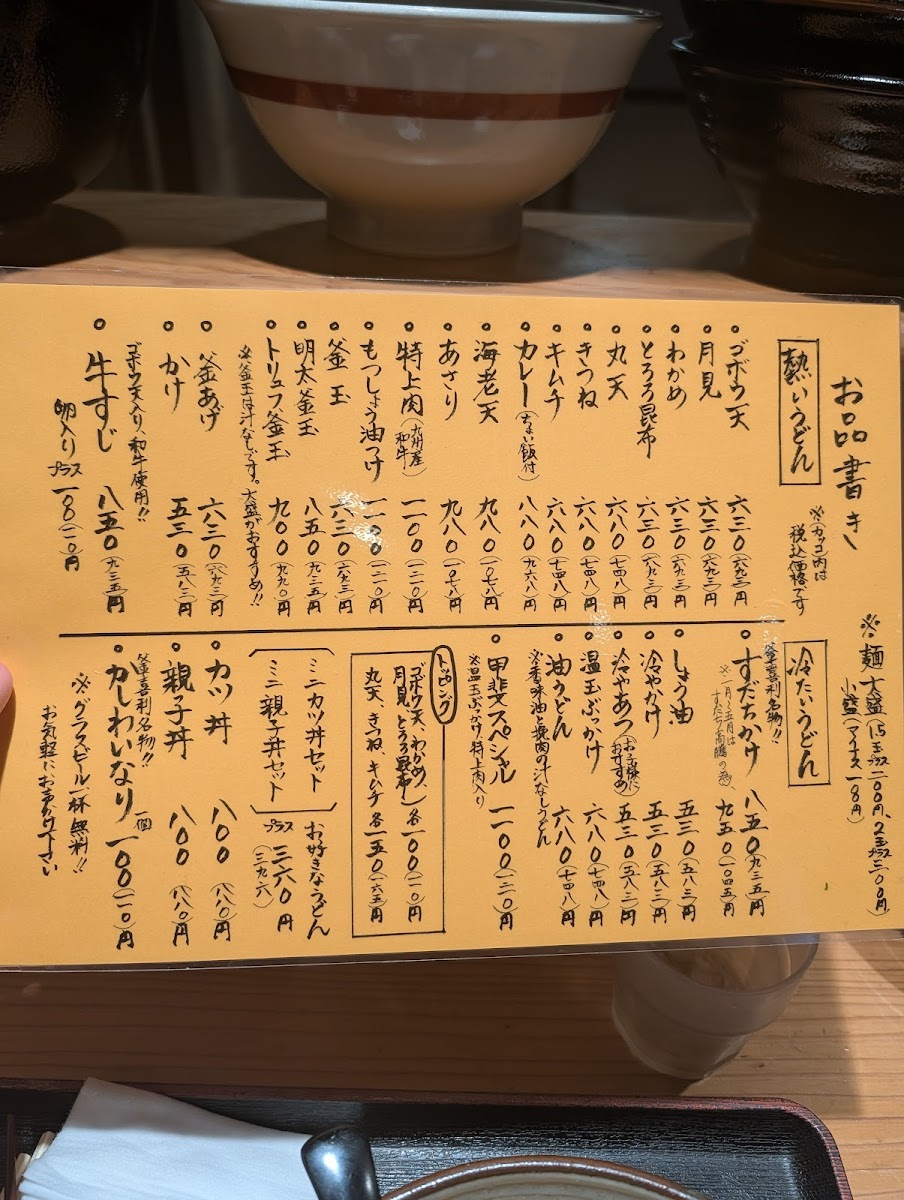 お品書き
※(カッコ)内は
税込価格です
※麺大盛(1.5玉プラス二〇〇円、2玉プラス三〇〇円)
小盛(マイナス一八円)
熱いうどん
ゴボウ天 六三〇(六九三)円
月見 六三〇(六九三)円
わかめ 六三〇(六九三)円
とろろ昆布 六三〇(六九三)円
丸天 六八〇(七四八)円
きつね 六八〇(七四八)円
キムチ 六八〇(七四八)円
カレー(ちょい飯付) 八八〇(九六八)円
海老天 九八〇(一〇七八)円
あさり 九八〇(一〇七八)円
特上肉(九州産和牛) 一一〇〇(一二一〇)円
もつしょう油つけ 一一〇〇(一二一〇)円
釜玉 六三〇(六九三)円
明太釜玉 八五〇(九三五)円
トリュフ釜玉 九〇〇(九九〇)円
※釜玉は汁なしです。大盛がおすすめ!!
釜あげ 六三〇(六九三)円
かけ 五三〇(五八三)円
ゴボウ天入り、和牛使用!!
牛すじ 八五〇(九三五)円
卵入りプラス一〇〇(一一〇)円
冷たいうどん
釜喜利名物!!
すだちかけ 八五〇(九三五)円
※二月~五月は
すだち高騰の為、九五〇(一〇四五)円
しょう油 五三〇(五八三)円
冷やかけ 五三〇(五八三)円
冷やあつ(お子様におすすめ) 五三〇(五八三)円
温玉ぶっかけ 六八〇(七四八)円
油うどん 六八〇(七四八)円
※香味油と挽肉の汁なしうどん
甲斐スペシャル 一一〇〇(一二一〇)円
※温玉ぶっかけ、特上肉入り
トッピング
ゴボウ天、わかめ、
月見、とろろ昆布 各一〇〇(一一〇)円
丸天、きつね、キムチ 各一五〇(一六五)円
お好きなうどん
ミニカツ丼セット
ミニ親子丼セット
プラス三六〇円
(三九六)
カツ丼 八〇〇(八八〇)円
親子丼 八〇〇(八八〇)円
釜喜利名物!!
かしわいなり 一個一〇〇(一一〇)円
※グラスビール一杯無料!!
お気軽にお声かけ下さい